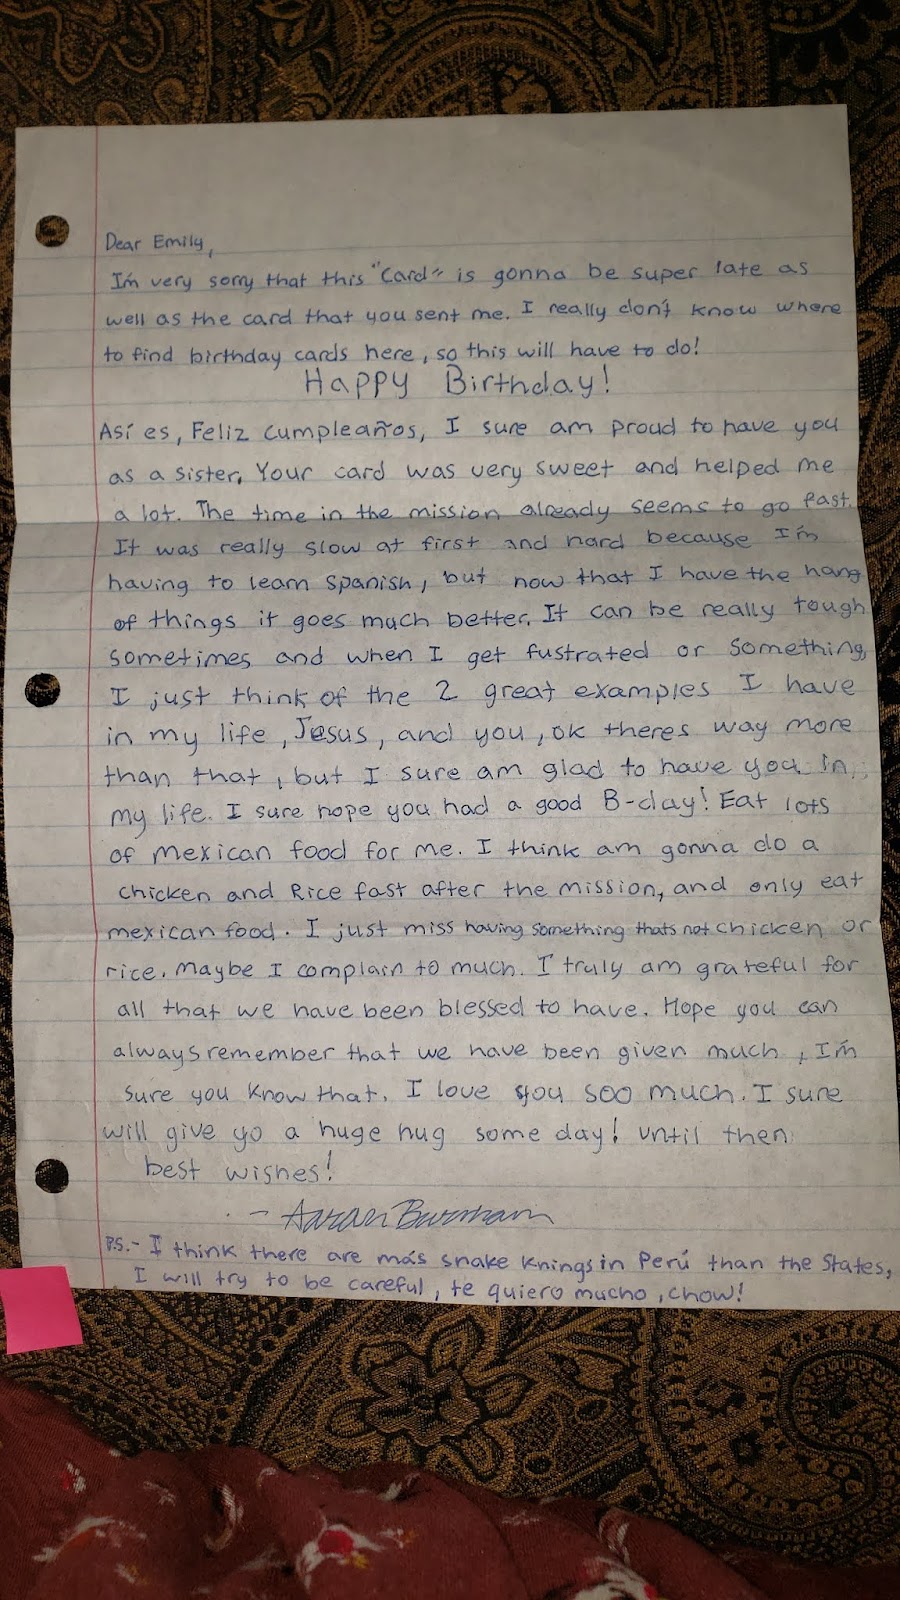 Dear Emily,
I'm very sorry that this "Card" is gonna be super late as
well as the card that you sent me. I really don't know where
to find birthday cards here, so this will have to do!
Happy Birthday!
Así es, Feliz cumpleaños, I sure am proud to have you
as a sister. Your card was very sweet and helped me
a lot. The time in the mission already seems to go fast.
It was really slow at first and hard because I'm
having to learn spanish, but now that I have the hang
of things it goes much better. It can be really tough
sometimes and when I get fustrated or something
I just think of the 2 great examples I have
in my life, Jesus, and you, ok theres way more
than that, but I sure am glad to have you in
my life. I sure hope you had a good B-day! Eat lots
of mexican food for me. I think am gonna do a
chicken and Rice fast after the mission, and only eat
mexican food. I just miss having something thats not chicken or
rice. Maybe I complain to much. I truly am grateful for
all that we have been blessed to have. Hope you can
always remember that we have been given much, I'm
sure you know that. I love you soo much. I sure
will give yo a huge hug some day! until then
best wishes!
- Aaran Burnham
P.S.- I think there are más snake knings in Perú than the States,
I will try to be careful, te quiero mucho, chow!